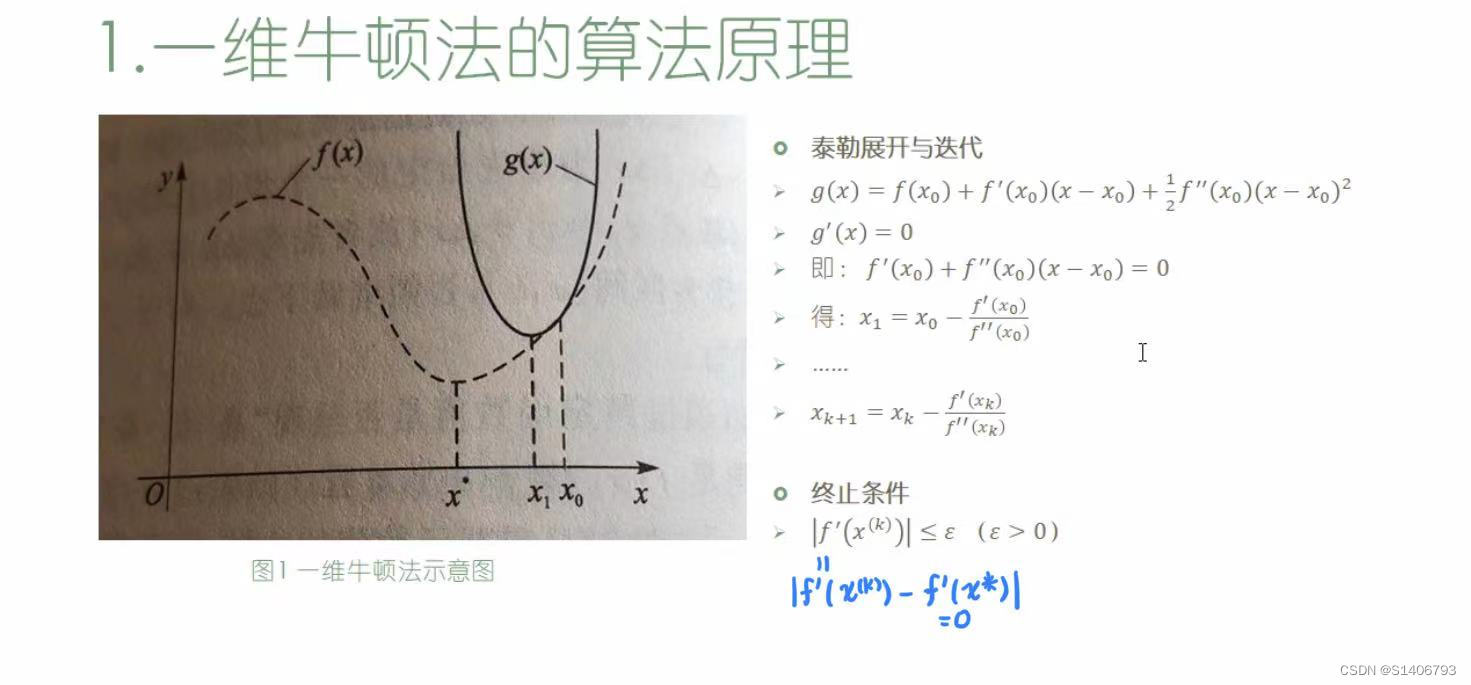 1.一维牛顿法的算法原理
y
f(x)
g(x)
O
x*
x₁
x₀
x
图1 一维牛顿法示意图
泰勒展开与迭代
g(x) = f(x₀) + f′(x₀)(x − x₀) + ½f″(x₀)(x − x₀)²
g′(x) = 0
即：f′(x₀) + f″(x₀)(x − x₀) = 0
得：x₁ = x₀ − f′(x₀)/f″(x₀)
......
xₖ₊₁ = xₖ − f′(xₖ)/f″(xₖ)
终止条件
|f′(x⁽ᵏ⁾)| ≤ ε （ε > 0）
=
|f′(x⁽ᵏ⁾) − f′(x*)|
=0
CSDN @S1406793